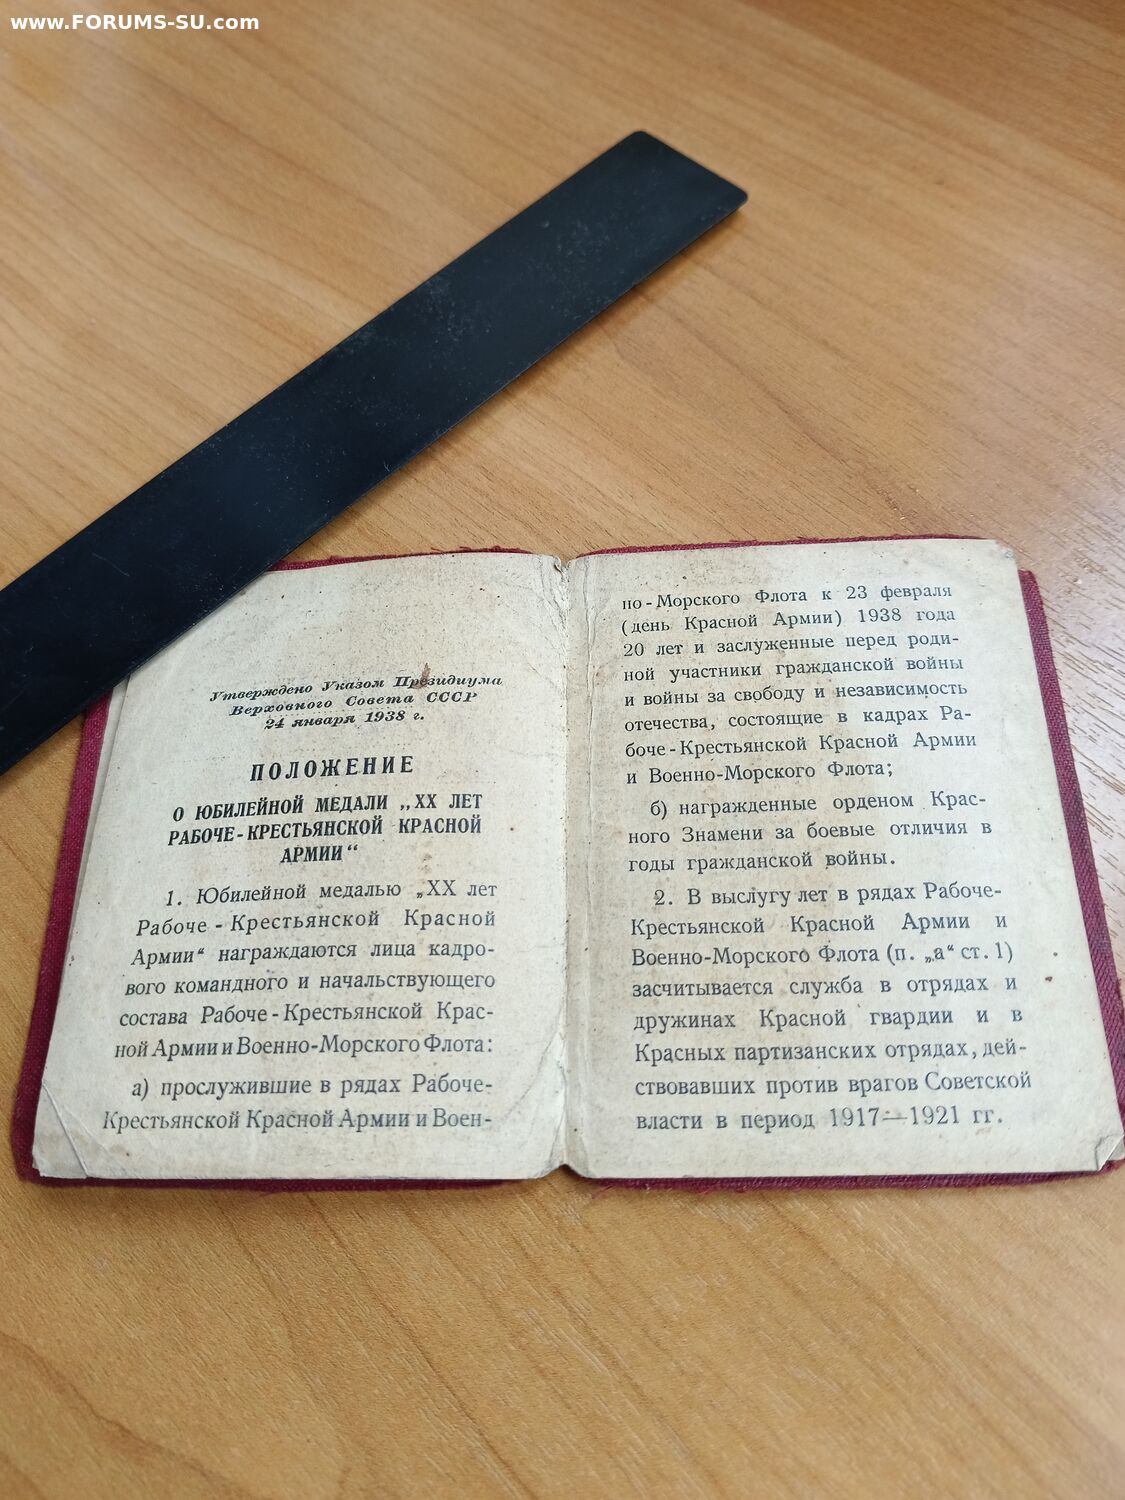 www.FORUMS-SU.com
Утверждено Указом Президиума
Верховного Совета СССР
24 января 1938 г.
ПОЛОЖЕНИЕ
О ЮБИЛЕЙНОЙ МЕДАЛИ „XX ЛЕТ
РАБОЧЕ-КРЕСТЬЯНСКОЙ КРАСНОЙ
АРМИИ“
1. Юбилейной медалью „XX лет
Рабоче-Крестьянской Красной
Армии“ награждаются лица кадро-
вого командного и начальствующего
состава Рабоче-Крестьянской Крас-
ной Армии и Военно-Морского Флота:
а) прослужившие в рядах Рабоче-
Крестьянской Красной Армии и Воен-
но-Морского Флота к 23 февраля
(день Красной Армии) 1938 года
20 лет и заслуженные перед роди-
ной участники гражданской войны
и войны за свободу и независимость
отечества, состоящие в кадрах Ра-
боче-Крестьянской Красной Армии
и Военно-Морского Флота;
б) награжденные орденом Крас-
ного Знамени за боевые отличия в
годы гражданской войны.
2. В выслугу лет в рядах Рабоче-
Крестьянской Красной Армии и
Военно-Морского Флота (п. „а“ ст. 1)
засчитывается служба в отрядах и
дружинах Красной гвардии и в
Красных партизанских отрядах, дей-
ствовавших против врагов Советской
власти в период 1917—1921 гг.